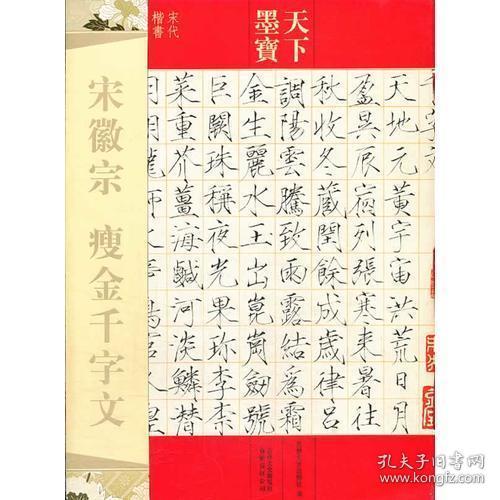 天下
墨寶
宋代
楷書
宋徽宗 瘦金千字文
千字文
天地元黃宇宙洪荒日月
盈昃辰宿列張寒来暑往
秋收冬蔵閏餘成歲律呂
調陽雲騰致雨露結爲霜
金生麗水玉出崑崗劔號
巨闕珠稱夜光果珎李柰
菜重芥薑海鹹河淡鱗潛
孔夫子旧书网